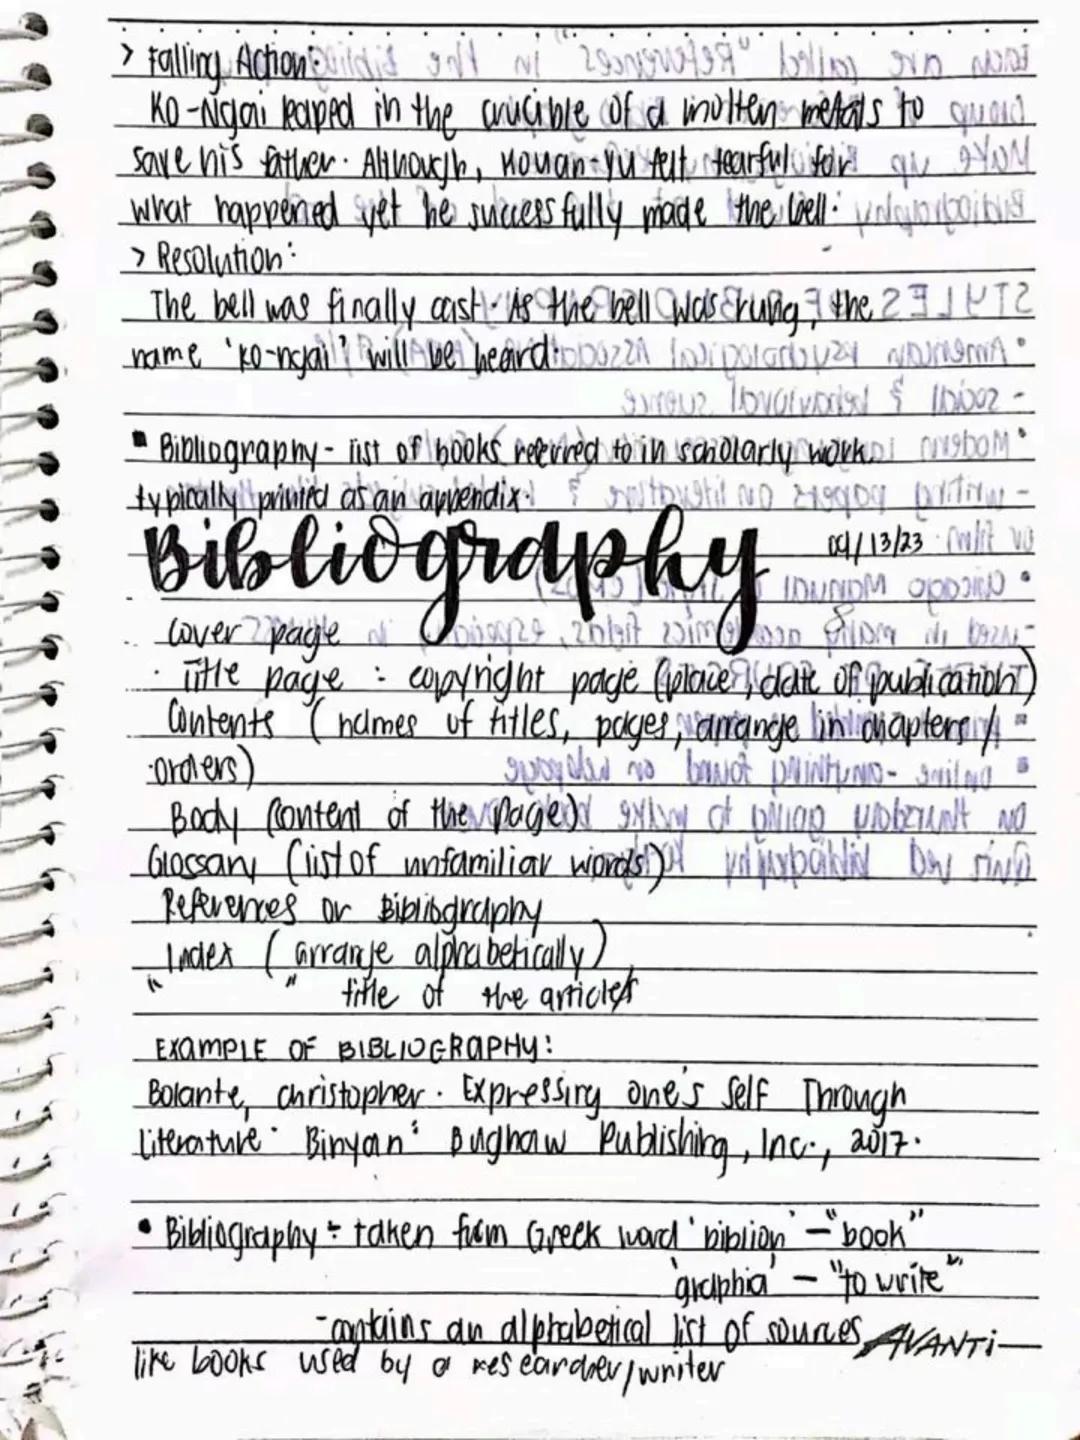 > Falling Action:
Ko-Ngai leaped in the crucible of a molten metals to
save his father. Although, Kouan-Yu felt fearful for
what happened yet he successfully made the bell.
> Resolution:
The bell was finally cast. As the bell was rung, the
name 'ko-ngai' will be heard.
▪ Bibliography - list of books referred to in scholarly work,
typically printed as an appendix.
Bibliography 09/13/23
Cover page
Title page : copyright page (place, date of publication)
Contents (names of titles, pages, arrange in chapters /
orders)
Body (content of the page)
Glossary (list of unfamiliar words)
References or Bibliography
Index (arrange alphabetically)
" " title of the articles
EXAMPLE OF BIBLIOGRAPHY:
Bolante, Christopher. Expressing one's Self Through
literature. Binyan: Bughaw Publishing, Inc., 2017.
• Bibliography - taken from Greek word 'biblion' - "book"
'graphia' - "to write"
- contains an alphabetical list of sources
like books used by a researcher/writer
AVANTi